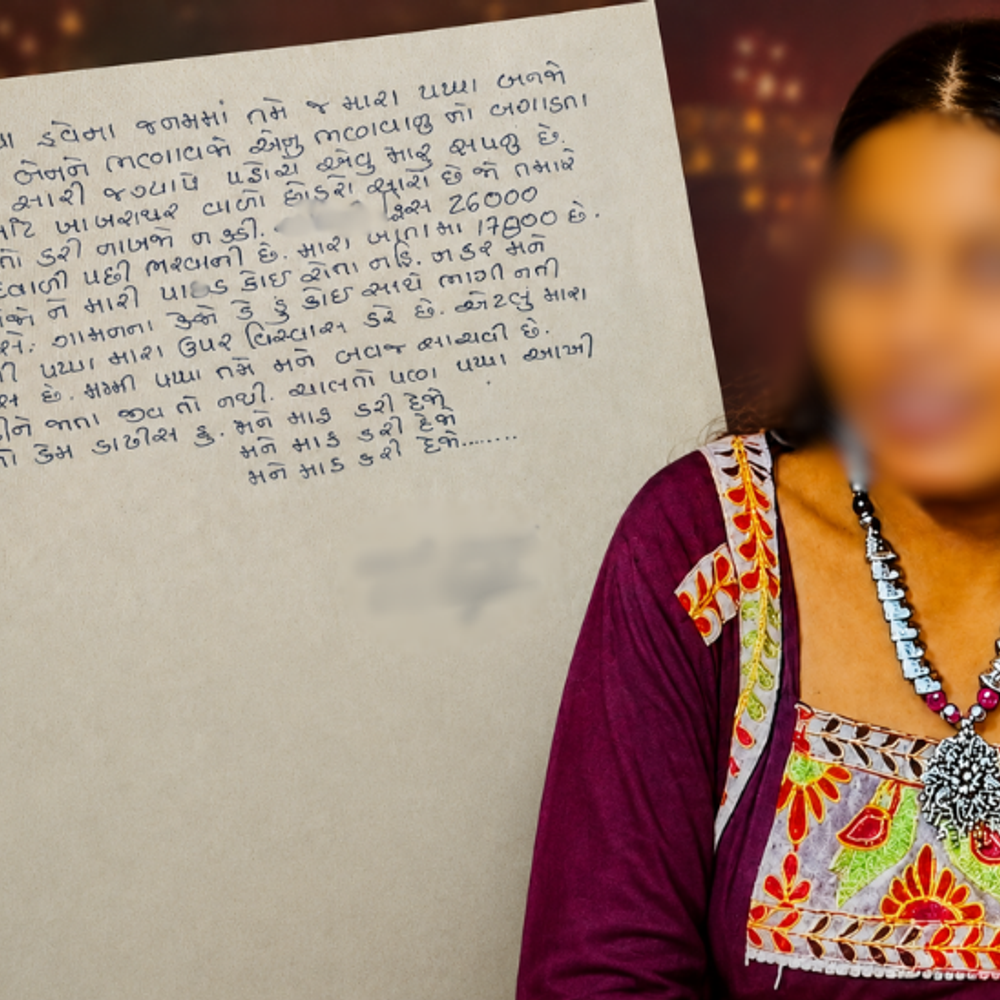 હવેના જનમમાં તમે જ મારા પપ્પા બનજો
બેનને ભણાવજો એનુ ભણવાનુ નો બગાડતા
સારી જગ્યાએ પહોચે એવુ મારુ સપનુ છે.
માટે ખાખરાથર વાળો છોકરો સારો છે જો તમારે
તો કરી નાખજો નક્કી. ફિસ 26000
દિવાળી પછી ભરવાની છે. મારા ખાતામા 17800 છે.
ને મારી પાછડ કોઈ રોતા નહિ. નકર મને
ગામનના કેજો કે હું કોઈ સાથે ભાગી નતી
પપ્પા મારા ઉપર વિસ્વાસ કરે છે. એટલું મારા
છે. મમ્મી પપ્પા તમે મને બવજ સાચવી છે.
જાતા જીવ તો નથી. ચાલતો પણ પપ્પા આખી
કેમ કાઢીસ હુ. મને માફ કરી દેજો
મને માફ કરી દેજો
મને માફ કરી દેજો.......